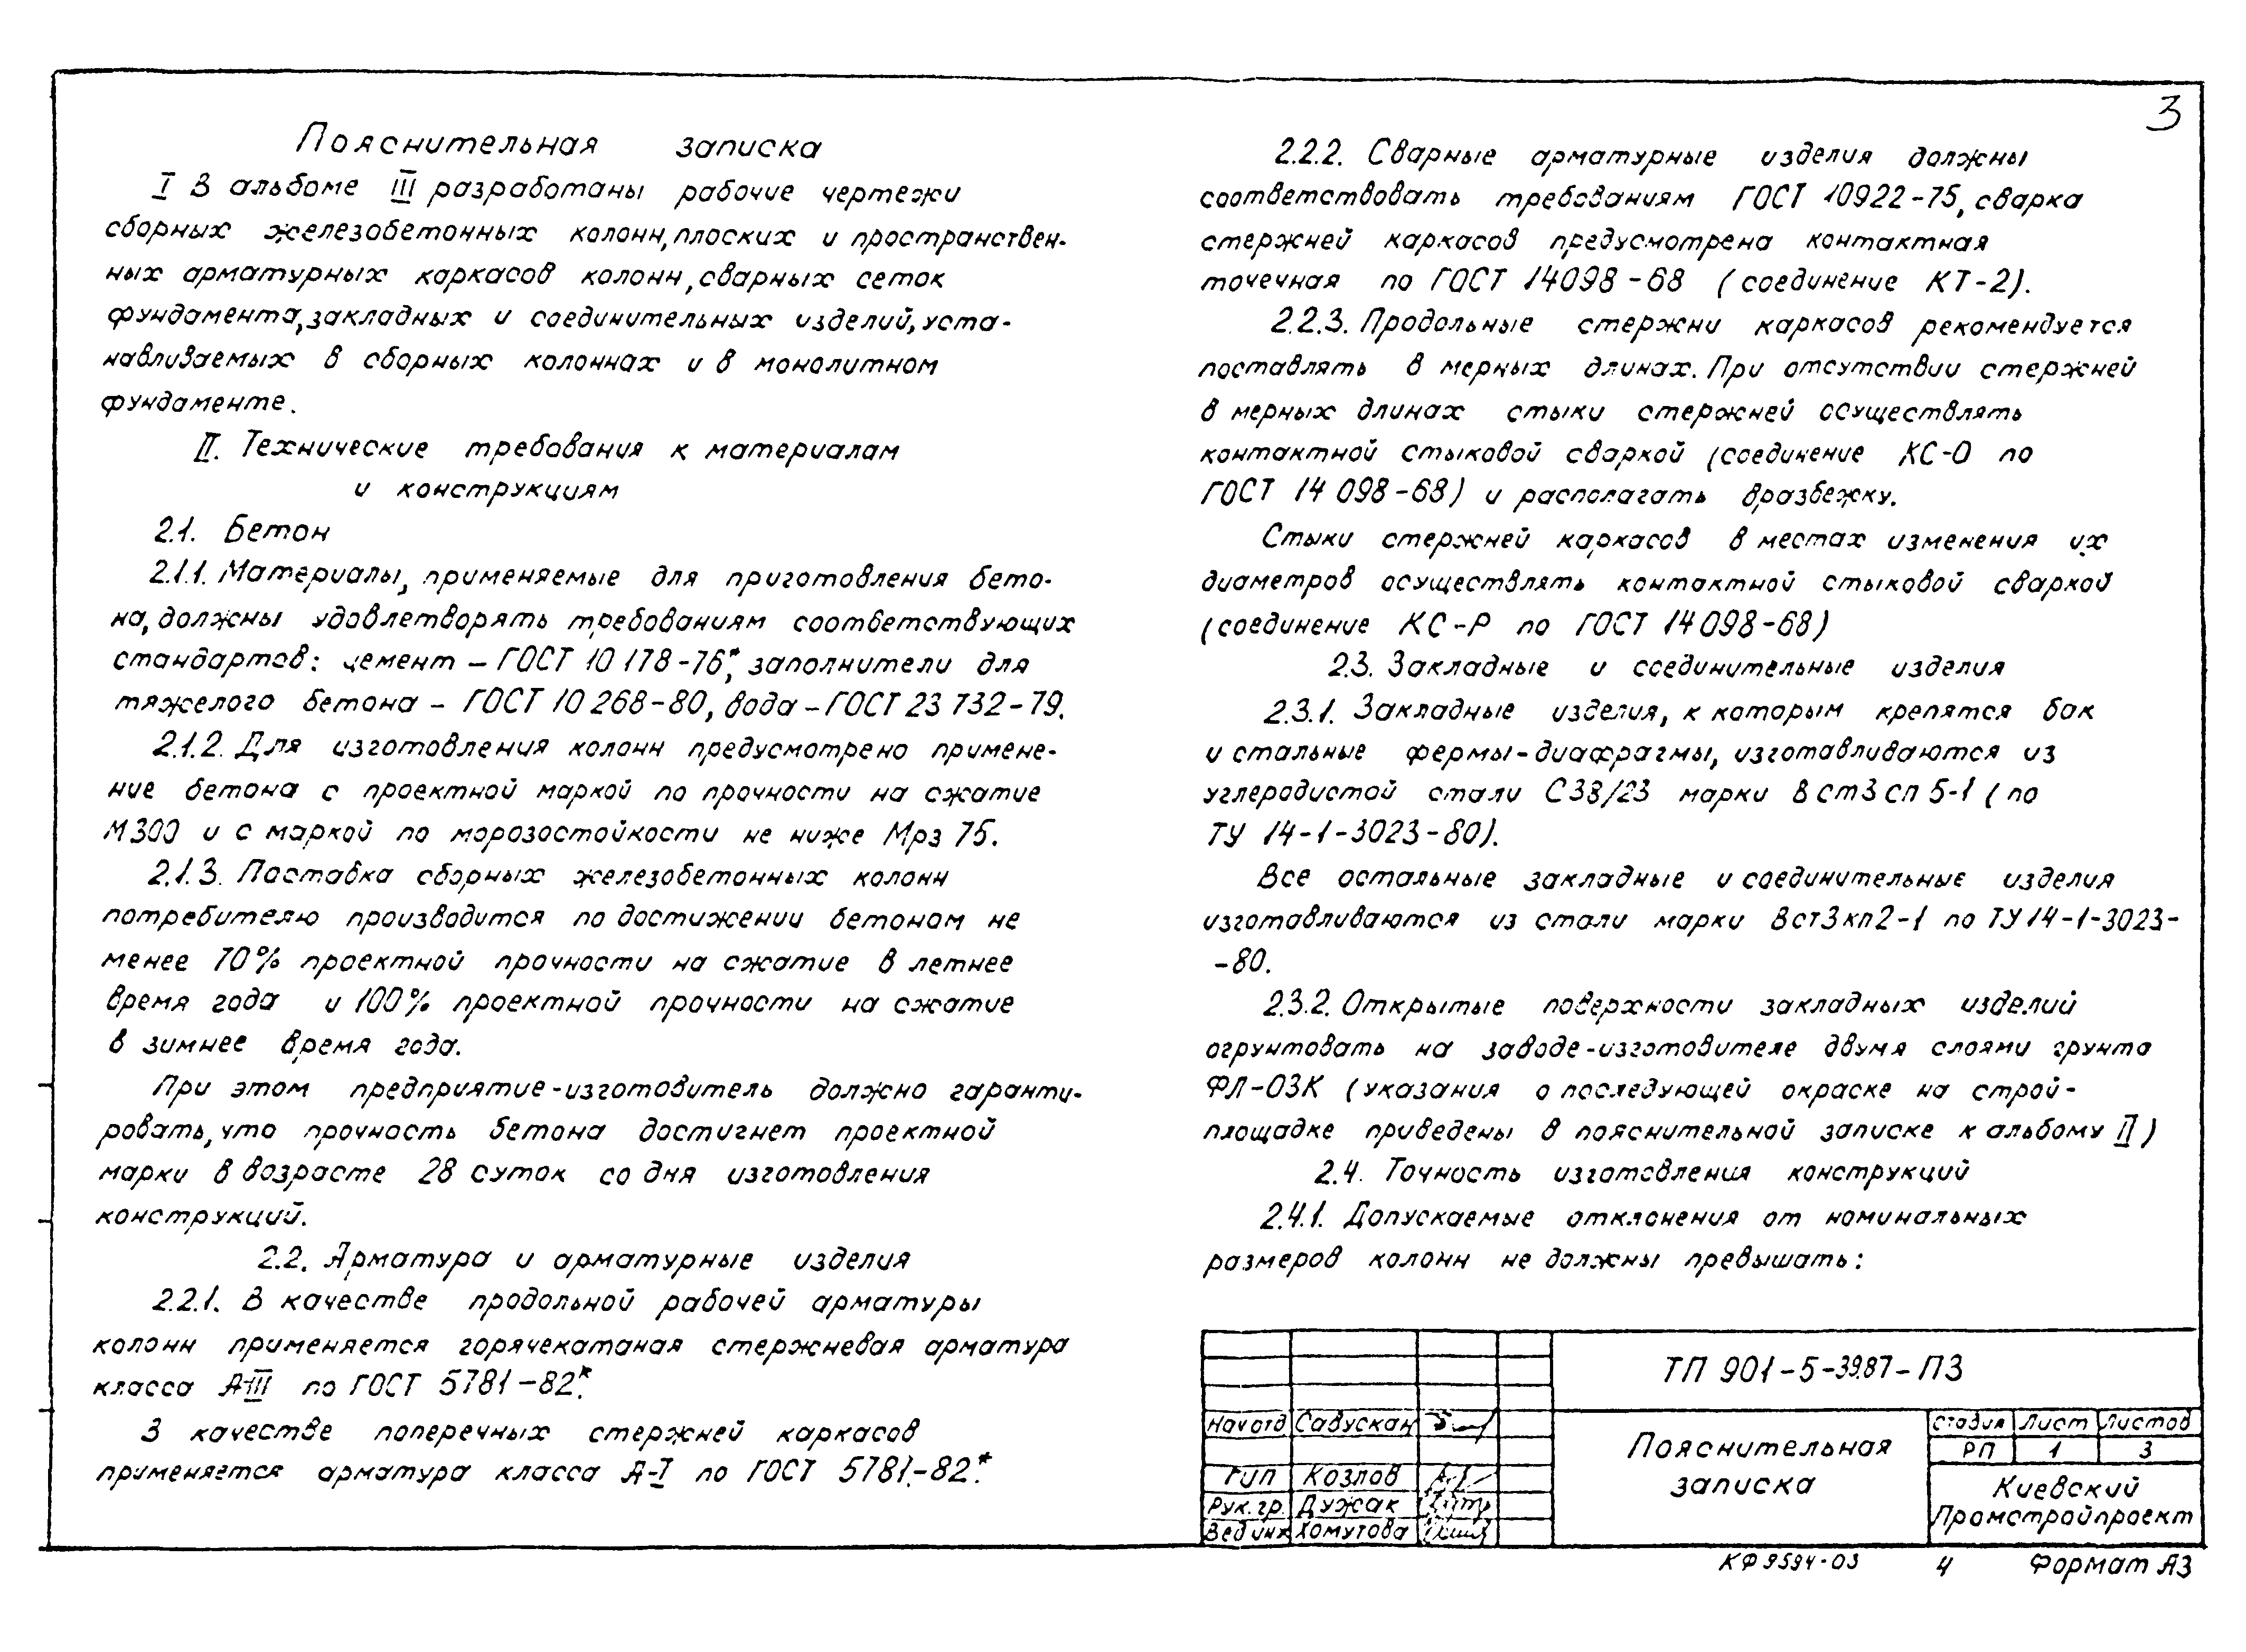 3
Пояснительная записка
I В альбоме III разработаны рабочие чертежи
сборных железобетонных колонн, плоских и пространствен-
ных арматурных каркасов колонн, сварных сеток
фундамента, закладных и соединительных изделий, уста-
навливаемых в сборных колоннах и в монолитном
фундаменте.
II. Технические требования к материалам
и конструкциям
2.1. Бетон
2.1.1. Материалы, применяемые для приготовления бето-
на, должны удовлетворять требованиям соответствующих
стандартов: цемент – ГОСТ 10 178-76*, заполнители для
тяжелого бетона – ГОСТ 10 268-80, вода – ГОСТ 23 732-79.
2.1.2. Для изготовления колонн предусмотрено примене-
ние бетона с проектной маркой по прочности на сжатие
М300 и с маркой по морозостойкости не ниже Мрз 75.
2.1.3. Поставка сборных железобетонных колонн
потребителю производится по достижении бетоном не
менее 70% проектной прочности на сжатие в летнее
время года и 100% проектной прочности на сжатие
в зимнее время года.
При этом предприятие-изготовитель должно гаранти-
ровать, что прочность бетона достигнет проектной
марки в возрасте 28 суток со дня изготовления
конструкций.
2.2. Арматура и арматурные изделия
2.2.1. В качестве продольной рабочей арматуры
колонн применяется горячекатаная стержневая арматура
класса А-III по ГОСТ 5781-82*.
В качестве поперечных стержней каркасов
применяется арматура класса А-I по ГОСТ 5781-82*.
2.2.2. Сварные арматурные изделия должны
соответствовать требованиям ГОСТ 10922-75, сварка
стержней каркасов предусмотрена контактная
точечная по ГОСТ 14098-68 (соединение КТ-2).
2.2.3. Продольные стержни каркасов рекомендуется
поставлять в мерных длинах. При отсутствии стержней
в мерных длинах стыки стержней осуществлять
контактной стыковой сваркой (соединение КС-О по
ГОСТ 14 098-68) и располагать вразбежку.
Стыки стержней каркасов в местах изменения их
диаметров осуществлять контактной стыковой сваркой
(соединение КС-Р по ГОСТ 14098-68)
2.3. Закладные и соединительные изделия
2.3.1. Закладные изделия, к которым крепятся бак
и стальные фермы-диафрагмы, изготавливаются из
углеродистой стали С38/23 марки Вст3сп5-1 (по
ТУ 14-1-3023-80).
Все остальные закладные и соединительные изделия
изготавливаются из стали марки Вст3кп2-1 по ТУ14-1-3023-
-80.
2.3.2. Открытые поверхности закладных изделий
огрунтовать на заводе-изготовителе двумя слоями грунта
ФЛ-03К (указания о последующей окраске на строй-
площадке приведены в пояснительной записке к альбому II)
2.4. Точность изготовления конструкций
2.4.1. Допускаемые отклонения от номинальных
размеров колонн не должны превышать:
ТП 901-5-39.87-ПЗ
Нач отд Савускан
ГИП Козлов
Рук. гр. Дужак
Вед инж Хомутова
Пояснительная
записка
Стадия Лист Листов
РП 1 3
Киевский
Промстройпроект
КФ 9594-03 4 Формат А3